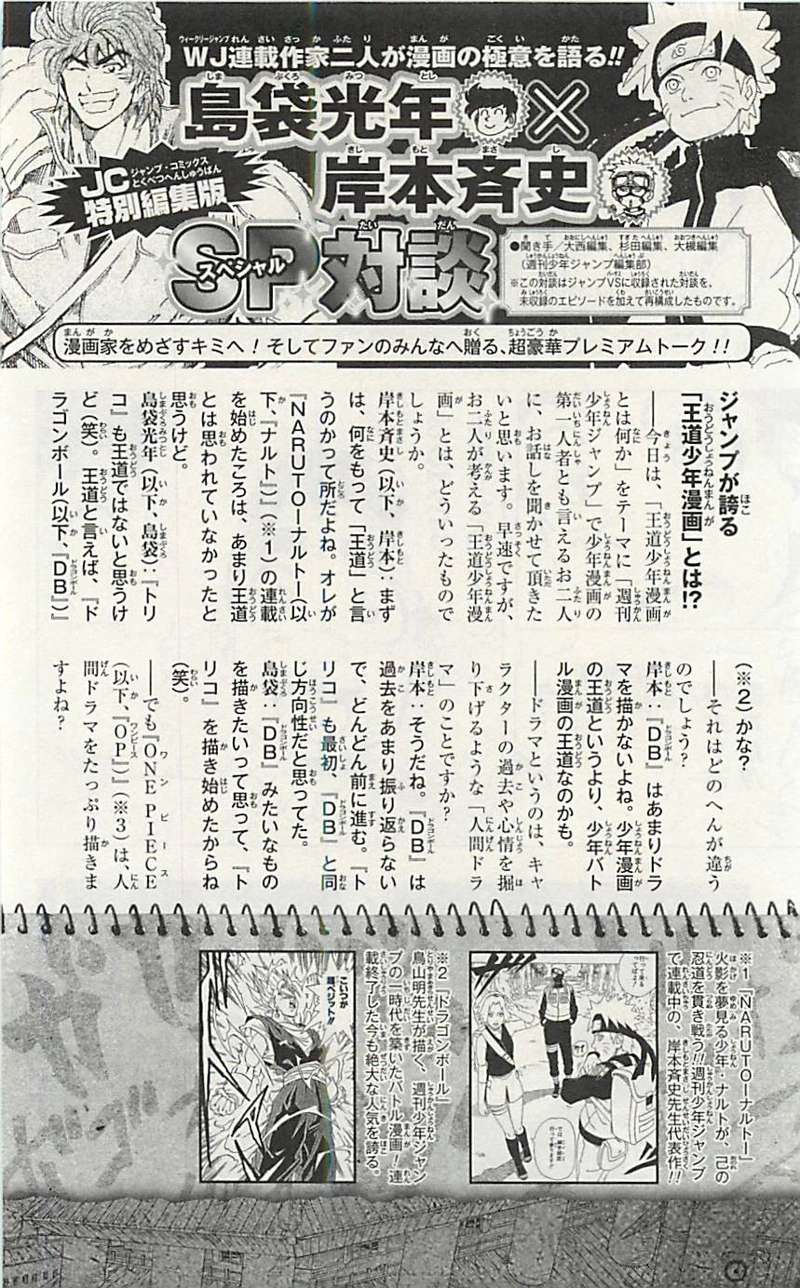 WJ連載作家二人が漫画の極意を語る!!
島袋光年×
岸本斉史
JC
特別編集版
SP対談
●聞き手/大西編集、杉田編集、大槻編集
(週刊少年ジャンプ編集部)
※この対談はジャンプVSに収録された対談を、
未収録のエピソードを加えて再構成したものです。
漫画家をめざすキミへ!そしてファンのみんなへ贈る、超豪華プレミアムトーク!!
ジャンプが誇る
「王道少年漫画」とは!?
――今日は、「王道少年漫画
とは何か」をテーマに「週刊
少年ジャンプ」で少年漫画の
第一人者とも言えるお二人
に、お話しを聞かせて頂きた
いと思います。早速ですが、
お二人が考える「王道少年漫
画」とは、どういったもので
しょうか。
岸本斉史(以下、岸本):まず
は、何をもって「王道」と言
うのかって所だよね。オレが
『NARUTO―ナルト―(以
下、『ナルト』)』(※1)の連載
を始めたころは、あまり王道
とは思われていなかったと
思うけど。
島袋光年(以下、島袋):『トリ
コ』も王道ではないと思うけ
ど(笑)。王道と言えば、『ド
ラゴンボール(以下、『DB』)』
(※2)かな?
――それはどのへんが違う
のでしょう?
岸本:『DB』はあまりドラ
マを描かないよね。少年漫画
の王道というより、少年バト
ル漫画の王道なのかも。
――ドラマというのは、キャ
ラクターの過去や心情を掘
り下げるような「人間ドラ
マ」のことですか?
岸本:そうだね。『DB』は
過去をあまり振り返らない
で、どんどん前に進む。『ト
リコ』も最初、『DB』と同
じ方向性だと思ってた。
島袋:『DB』みたいなもの
を描きたいって思って、『ト
リコ』を描き始めたからね
(笑)。
――でも『ONE PIECE
(以下、『OP』)』(※3)は、人
間ドラマをたっぷり描きま
すよね?
※1「NARUTO―ナルト―」
火影を夢見る少年・ナルトが、己の
忍道を貫き戦う!!週刊少年ジャンプ
で連載中の、岸本斉史先生代表作!!
※2「ドラゴンボール」
鳥山明先生が描く、週刊少年ジャン
プの一時代を築いたバトル漫画!連
載終了した今も絶大な人気を誇る。
こいつが
超ベジット!!